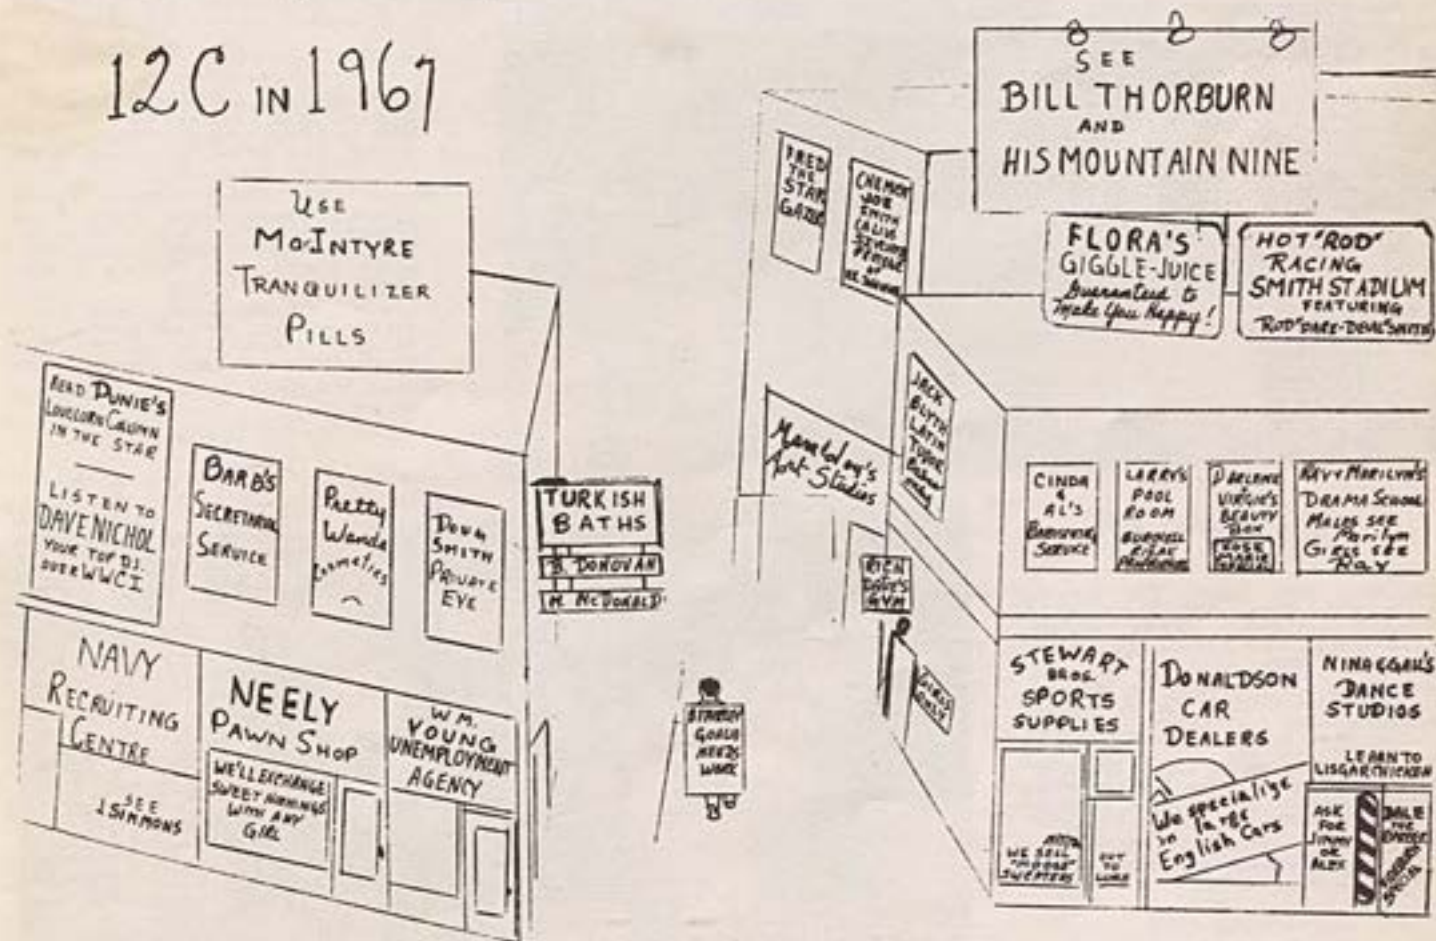 12C IN 1967
USE
McINTYRE
TRANQUILIZER
PILLS
READ DUNIE'S
LOVELORN COLUMN
IN THE STAR
LISTEN TO
DAVE NICHOL
YOUR TOP D.J.
OVER WWCI
BARB'S
SECRETARIAL
SERVICE
Pretty
Wanda
Cosmetics
DOUG
SMITH
PRIVATE
EYE
TURKISH
BATHS
B. DONOVAN
M. McDONALD
NAVY
RECRUITING
CENTRE
SEE
J. SIMMONS
NEELY
PAWN SHOP
WE'LL EXCHANGE
SWEET NOTHINGS
WITH ANY
GIRL
WM.
YOUNG
UNEMPLOYMENT
AGENCY
NEEDS
WORK
SEE
BILL THORBURN
AND
HIS MOUNTAIN NINE
FRED
THE
STAR
GAZER
JOE
SMITH
FLORA'S
GIGGLE-JUICE
Guaranteed to
Make You Happy!
HOT "ROD"
RACING
SMITH STADIUM
FEATURING
"ROD" DARE-DEVIL SMITH
JACK
BLYTH
LATIN
TUTOR
Art Studios
RICH
DAVE'S
GYM
GIRLS
ONLY
CINDA
&
AL'S
BABYSITTING
SERVICE
LARRY'S
POOL
ROOM
DARLENE
VIRGIE'S
BEAUTY
RAY MARILYN'S
DRAMA SCHOOL
MALES SEE
Marilyn
GIRLS SEE
RAY
STEWART
BROS.
SPORTS
SUPPLIES
WE SELL
SWEATERS
OUT
TO
LUNCH
DONALDSON
CAR
DEALERS
We specialize
in large
English Cars
DANCE
STUDIOS
LEARN TO
LISGAR CHICKEN
ASK
FOR
JIMMY
OR
ALEX
DALE
THE
BARBER
SPECIAL